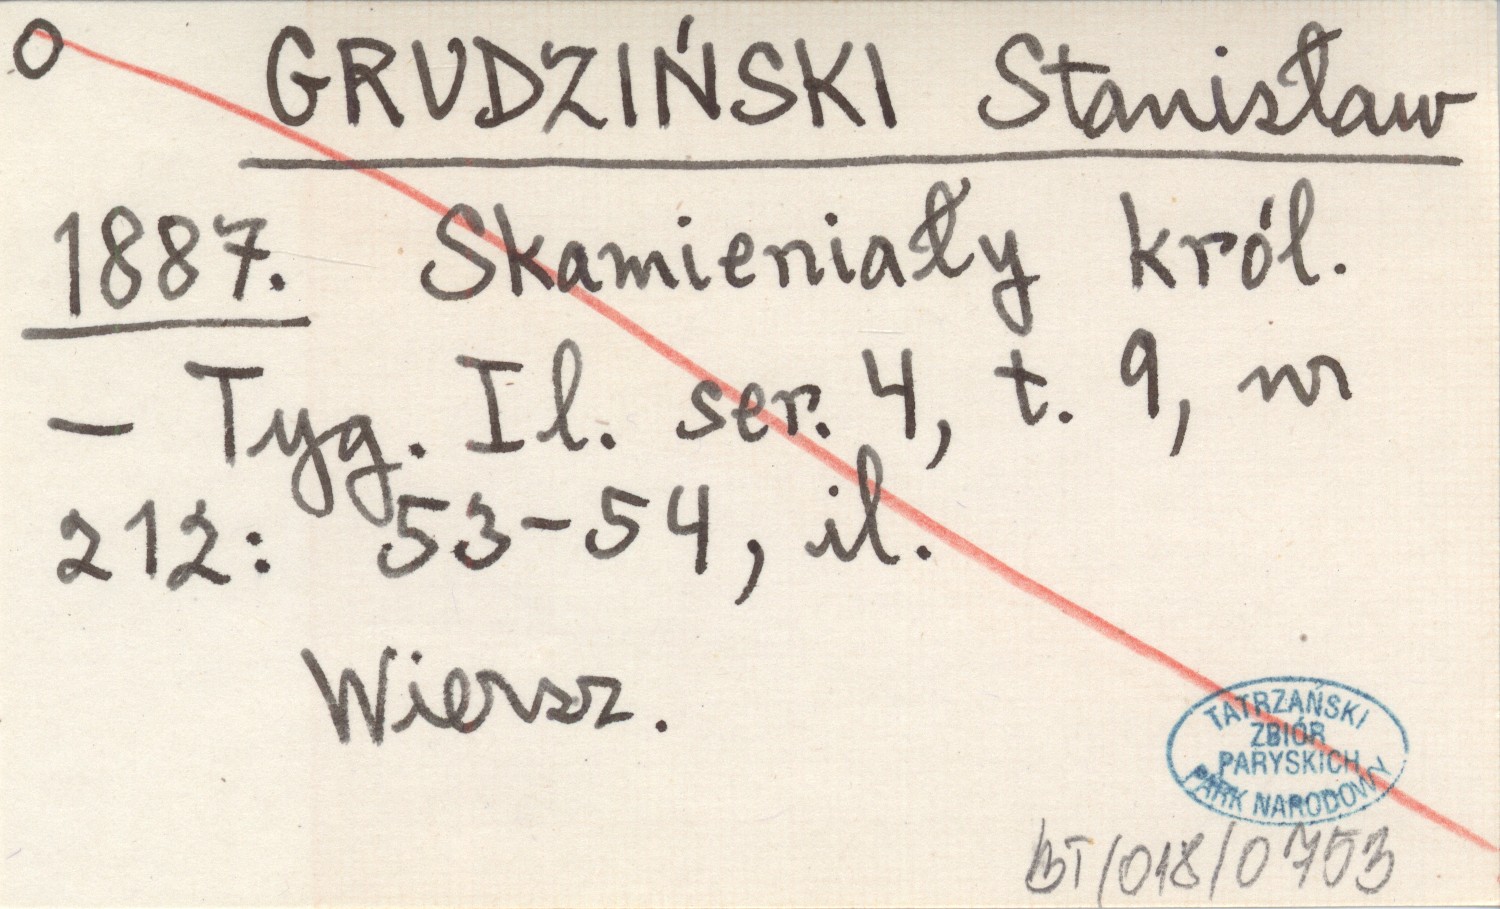 O GRUDZIŃSKI Stanisław
1887. Skamieniały król.
– Tyg. Il. ser. 4, t. 9, nr
212: 53–54, il.
Wiersz.
TATRZAŃSKI
ZBIÓR
PARYSKICH
PARK NARODOWY
BT/018/0753